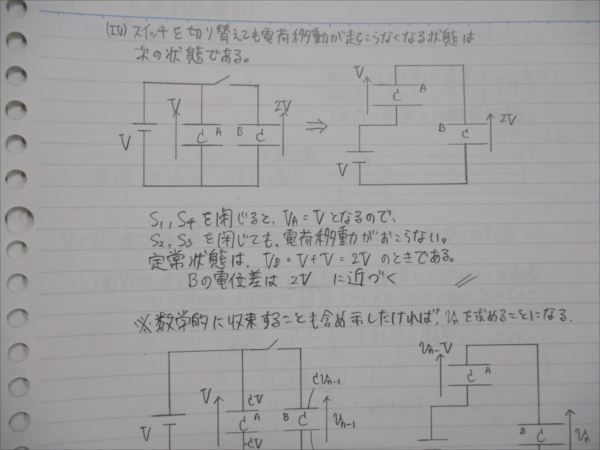 (IV) スイッチを切り替えても電荷移動が起こらなくなる状態は
次の状態である。
V V C A B C 2V ⇒ V C A B C 2V V
S1, S4 を閉じると、VA = V となるので、
S2, S3 を閉じても、電荷移動がおこらない。
定常状態は、VB = V + V = 2V のときである。
Bの電位差は 2V に近づく
※数学的に収束することも含め示したければ、Vnを求めることになる.
V V CV C A CV B C CVn-1 Vn-1 Vn-V C A B C Vn